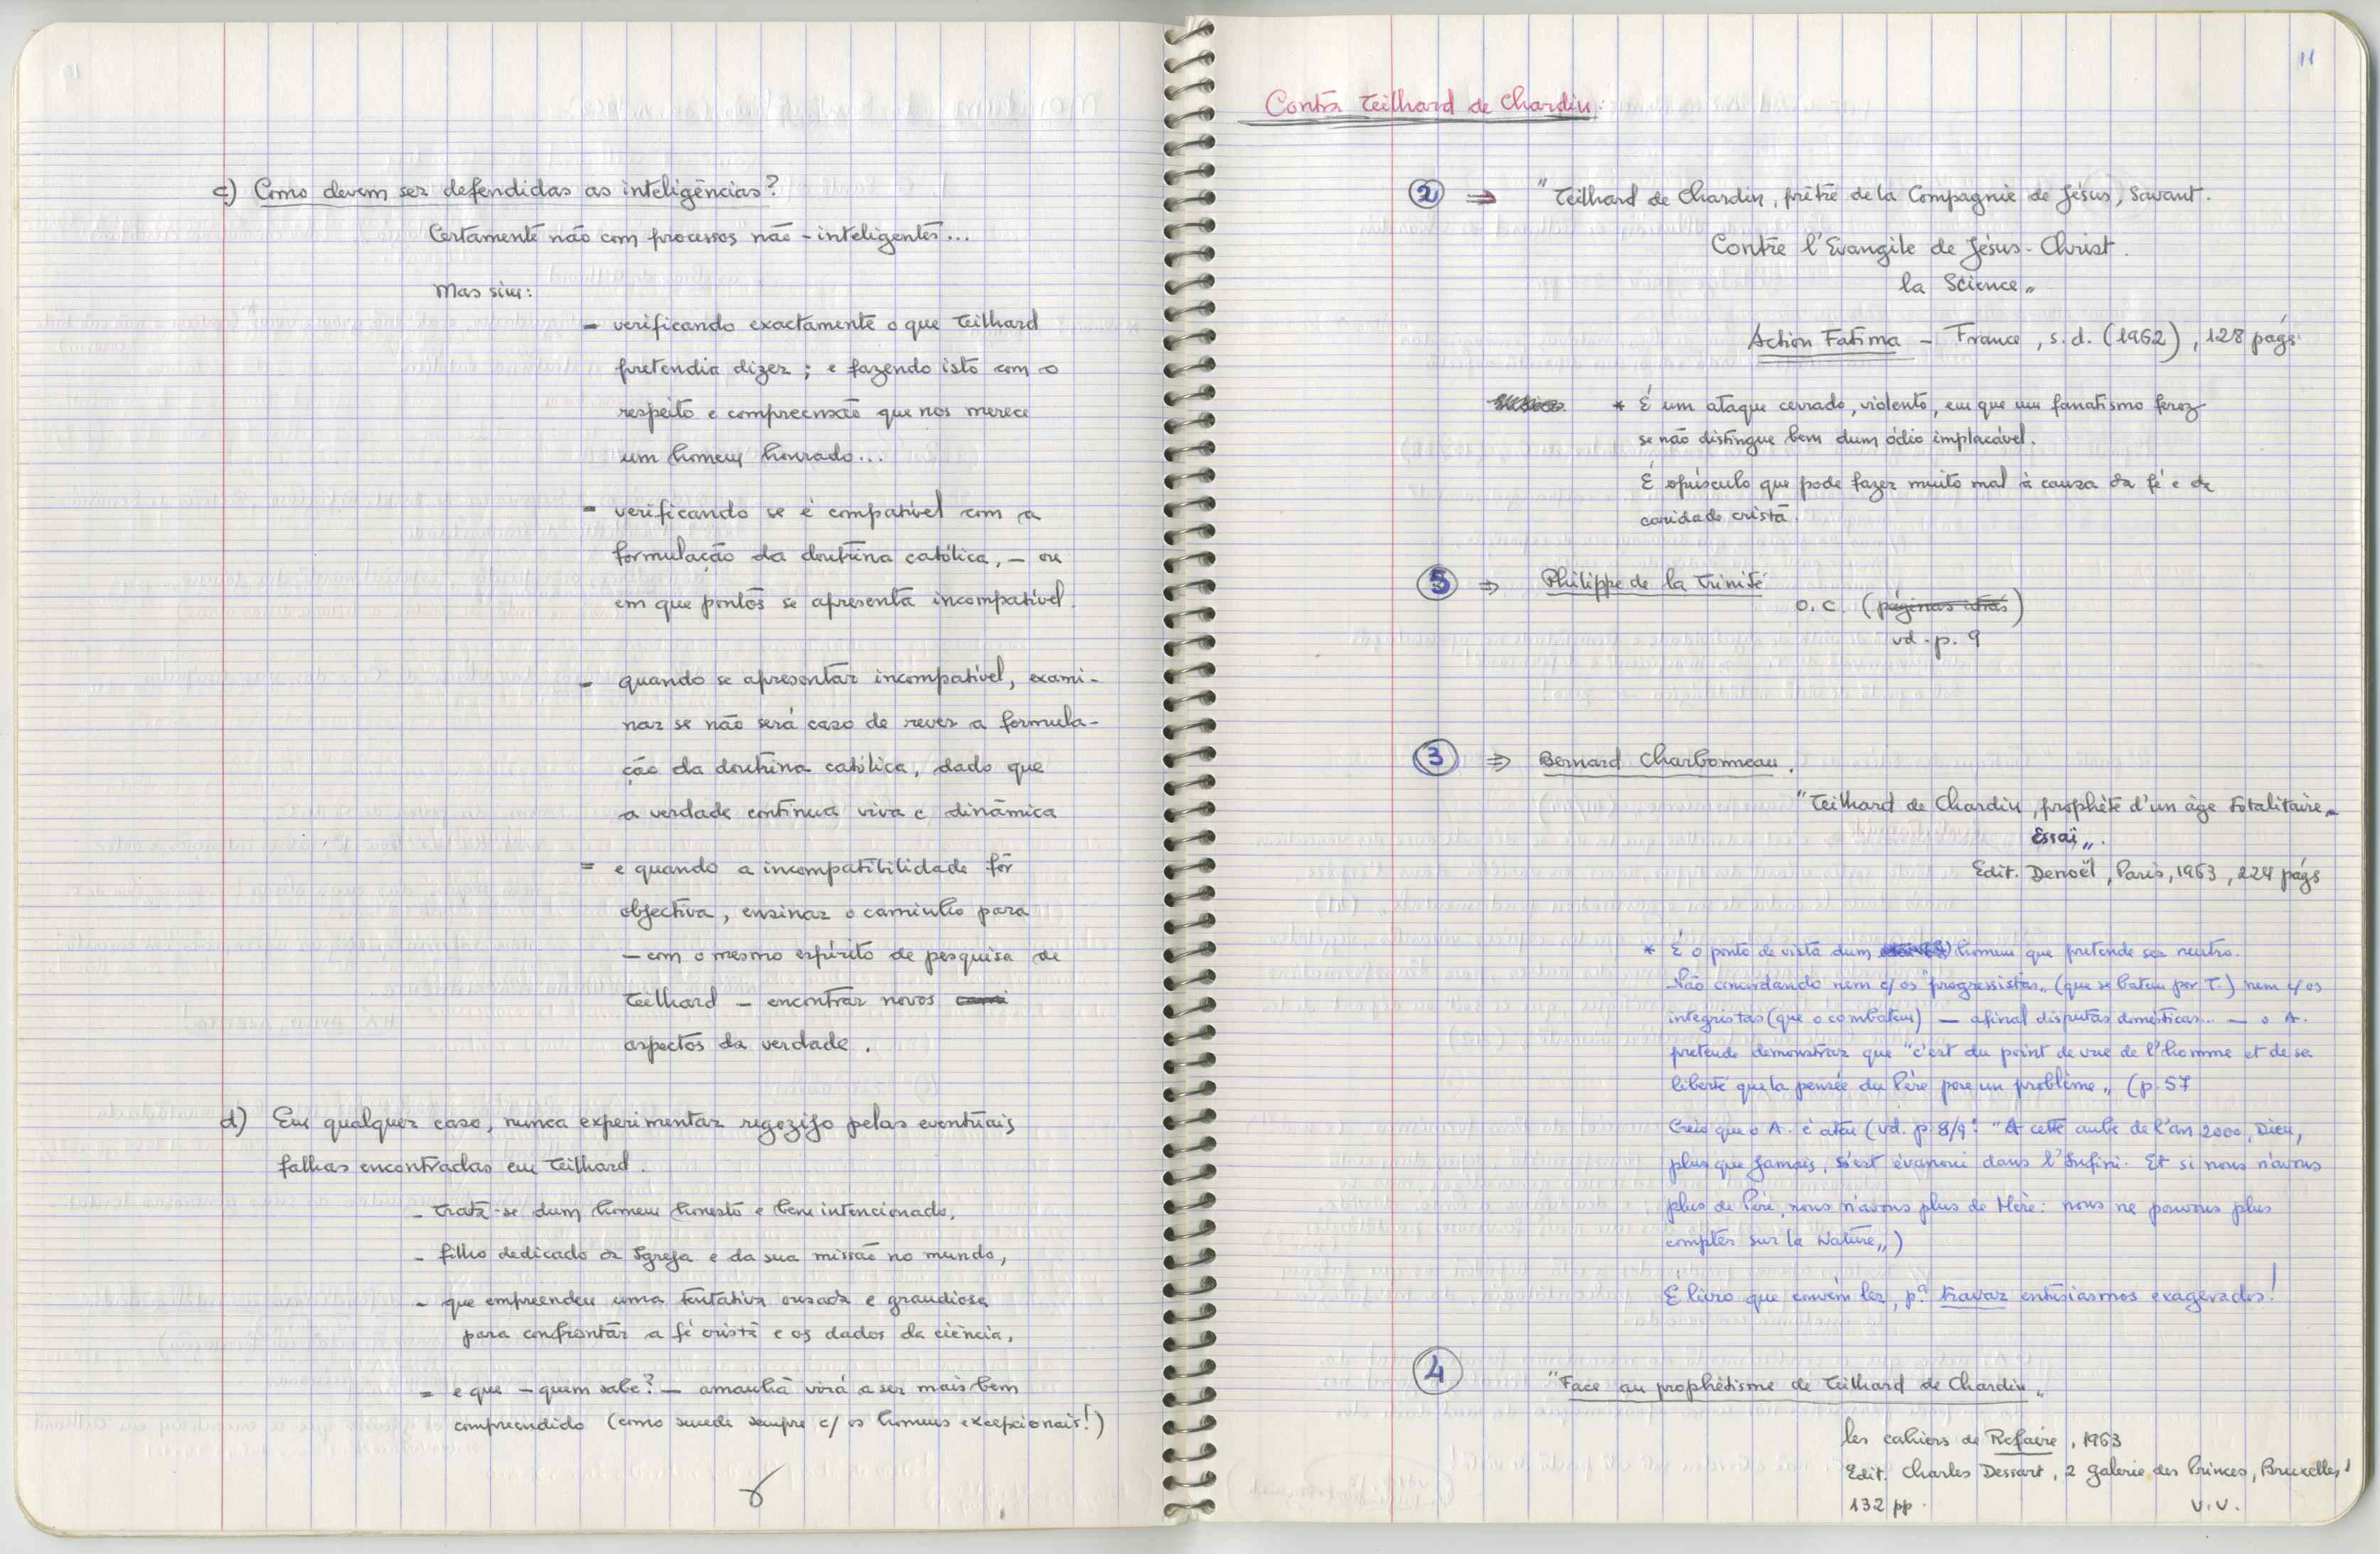 c) Como devem ser defendidas as inteligências?
Certamente não com processos não-inteligentes...
Mas sim:
- verificando exactamente o que Teilhard
pretendia dizer; e fazendo isto com o
respeito e compreensão que nos merece
um homem honrado...
- verificando se é compatível com a
formulação da doutrina católica, - ou
em que pontos se apresenta incompatível.
- quando se apresentar incompatível, exami-
nar se não será caso de rever a formula-
ção da doutrina católica, dado que
a verdade continua viva e dinâmica
- e quando a incompatibilidade fôr
objectiva, ensinar o caminho para
- com o mesmo espírito de pesquisa de
Teilhard - encontrar novos
aspectos da verdade.
d) Em qualquer caso, nunca experimentar regozijo pelas eventuais
falhas encontradas em Teilhard.
- trata-se dum homem honesto e bem intencionado,
- filho dedicado da Igreja e da sua missão no mundo,
- que empreendeu uma tentativa ousada e grandiosa
para confrontar a fé cristã e os dados da ciência,
- e que - quem sabe? - amanhã virá a ser mais bem
compreendido (como sucede sempre c/ os homens excepcionais!)
11
Contra Teilhard de Chardin:
2 ⇒ "Teilhard de Chardin, prêtre de la Compagnie de Jésus, Savant.
Contre l'Evangile de Jésus-Christ.
la Science"
Action Fatima - France, s.d. (1962), 128 págs.
* É um ataque cerrado, violento, em que um fanatismo feroz
se não distingue bem dum ódio implacável.
É opúsculo que pode fazer muito mal à causa da fé e da
caridade cristã.
5 ⇒ Philippe de la Trinité
o.c. (páginas atrás)
vd. p. 9
3 ⇒ Bernard Charbonneau.
"Teilhard de Chardin, prophète d'un âge totalitaire.
Essai".
Edit. Denoël, Paris, 1963, 224 págs
* É o ponto de vista dum homem que pretende ser neutro.
Não concordando nem c/ os "progressistas" (que se batem por T.) nem c/ os
integristas (que o combatem) - afinal disputas domésticas... - o A.
pretende demonstrar que "c'est du point de vue de l'homme et de sa
liberté que la pensée du Père pose un problème" (p. 57
Creio que o A. é ateu (vd. p. 8/9: "A cette aube de l'an 2000, Dieu,
plus que jamais, s'est évanoui dans l'Infini. Et si nous n'avons
plus de Père, nous n'avons plus de Mère: nous ne pouvons plus
compter sur la Nature")
É livro que convém ler, pª travar entusiasmos exagerados!
4 "Face au prophétisme de Teilhard de Chardin"
les cahiers de Refaire, 1963
Edit. Charles Dessart, 2 Galerie des Princes, Bruxelles
132 pp. V.V.